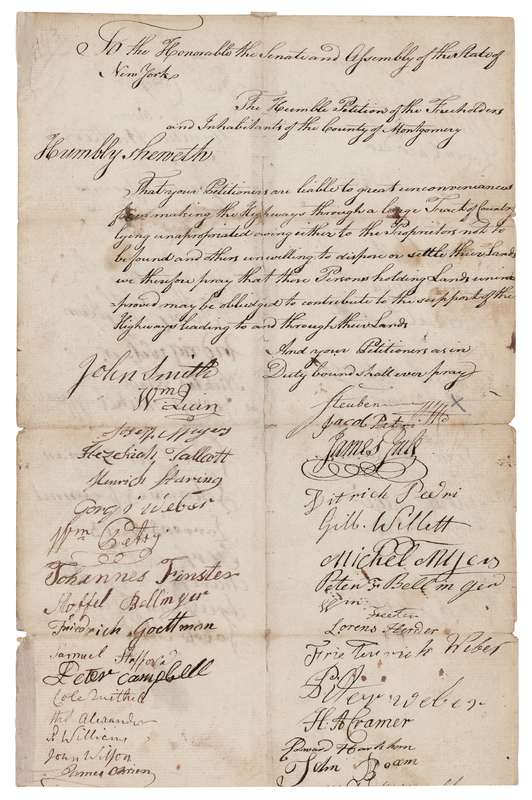 To the Honorable the Senate and Assembly of the State of
New York
The Humble Petition of the Freeholders
and Inhabitants of the County of Montgomery
Humbly sheweth
That your Petitioners are liable to great inconveniences
from making the Highways through a large Tract of Country
lying unapropriated owing either to the Proprietors not to
be found and others unwilling to dispose or settle their Lands
we therefore pray that those Persons holding Lands unim
proved may be obliedged to contribute to the support of the
Highways leading to and through their Lands
And your Petitioners as in
Duty bound shall ever pray
John Smith
Wm Quin
Joseph Mayer
Hezekiah Talcott
Henrich Staring
Georg Weber
Wm Petry
Johannes Finster
Stoffel Bellinger
Friedrich Goettman
Samuel
Peter Campbell
Cole
Alexander
Williams
John Wilson
James Obrien
Steuben
Jacob Petri
James
Ditrich Pedri
Gilb. Willett
Michel Myers
Peter F Bellinger
Wm Feeter
Lorens Herder
Frie Terrich Weber
Weber
H. A Cramer
Edward
John